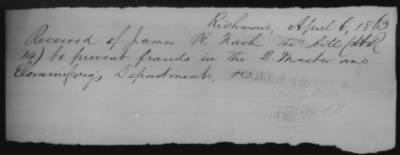 Richmond, April 6, 1863
Received of James H. Nash the bill (H.R
14) to prevent frauds in the Q. Master and
Commissary's Departments.